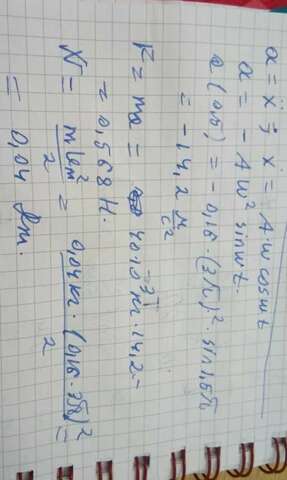 a = ẍ ; ẋ = A·ω cos ωt
a = - A ω² sin ωt.
a (0,5) = - 0,16 · (3π)² · sin 1,5π
= - 14,2 м/с²
F = ma = 40·10⁻³ кг · 14,2 =
= 0,568 Н.
W = mV²/2 = 0,04 кг · (0,16 · 3π)²/2 =
= 0,04 Дж.